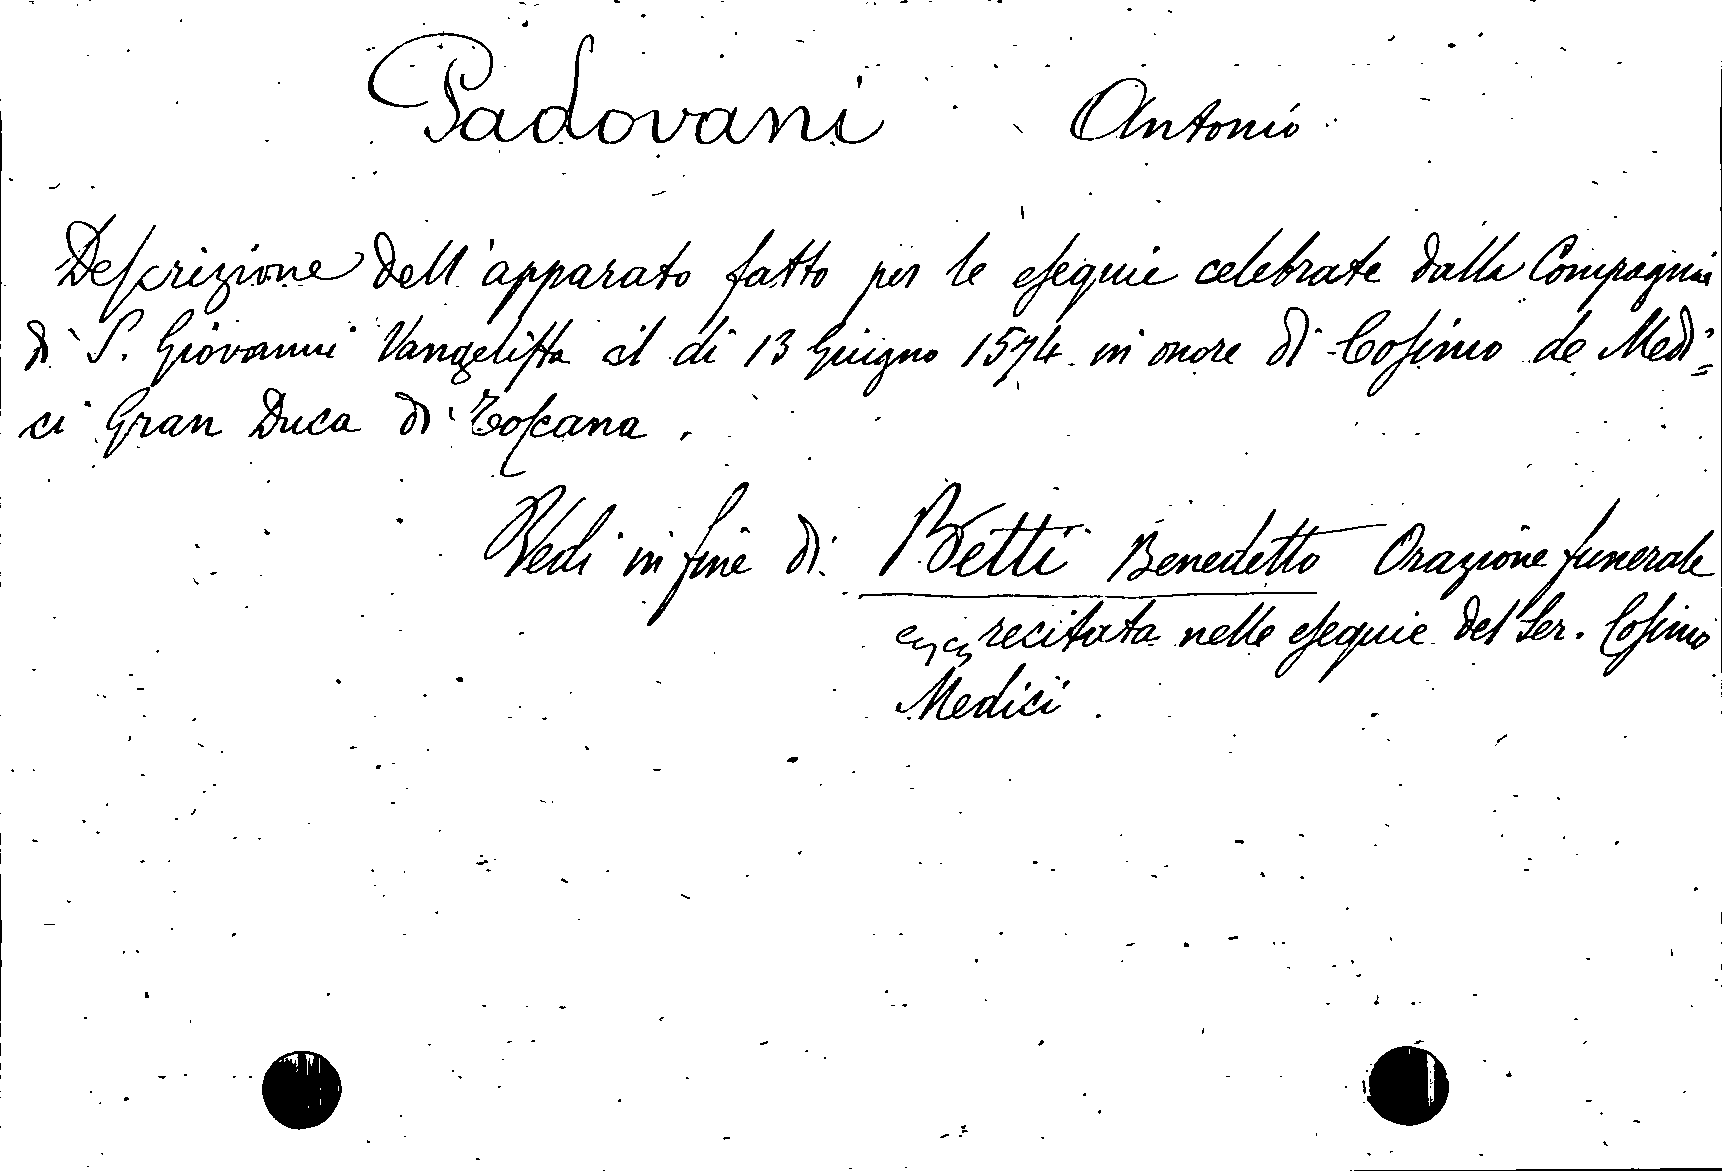 Padovani Antonio
Deſcrizione dell'apparato fatto per le eſequie celebrate dalla Compagnia
di S. Giovanni Vangeliſta il di 13 Giugno 1574 in onore di Coſimo de Medi=
ci Gran Duca di Toſcana.
Vedi in fine di Betti Benedetto Orazione funerale
recitata nelle eſequie del Ser. Coſimo
Medici.